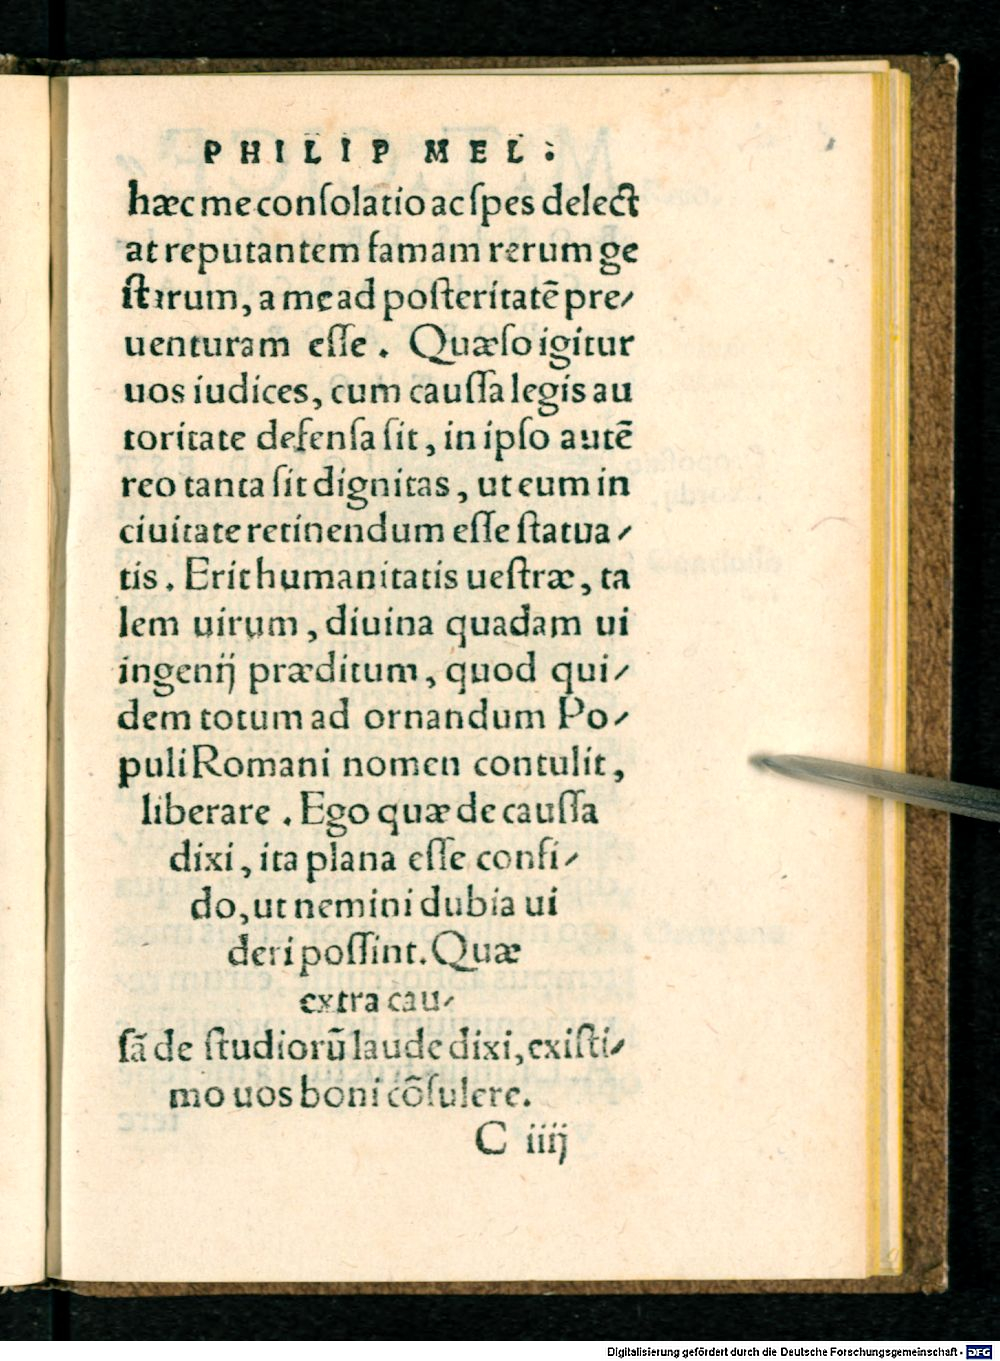 PHILIP MEL.
hæc me conſolatio ac ſpes delect
at reputantem famam rerum ge
ſtarum, a me ad poſteritatē pre⸗
uenturam eſſe. Quæſo igitur
uos iudices, cum cauſſa legis au
toritate defenſa ſit, in ipſo autē
reo tanta ſit dignitas, ut eum in
ciuitate retinendum eſſe ſtatua⸗
tis. Erit humanitatis ueſtræ, ta
lem uirum, diuina quadam ui
ingenij præditum, quod qui⸗
dem totum ad ornandum Po⸗
puli Romani nomen contulit,
liberare. Ego quæ de cauſſa
dixi, ita plana eſſe confi⸗
do, ut nemini dubia ui
deri poſſint. Quæ
extra cau⸗
ſā de ſtudiorū laude dixi, exiſti⸗
mo uos boni cōſulere.
C iiij
Digitalisierung gefördert durch die Deutsche Forschungsgemeinschaft - DFG